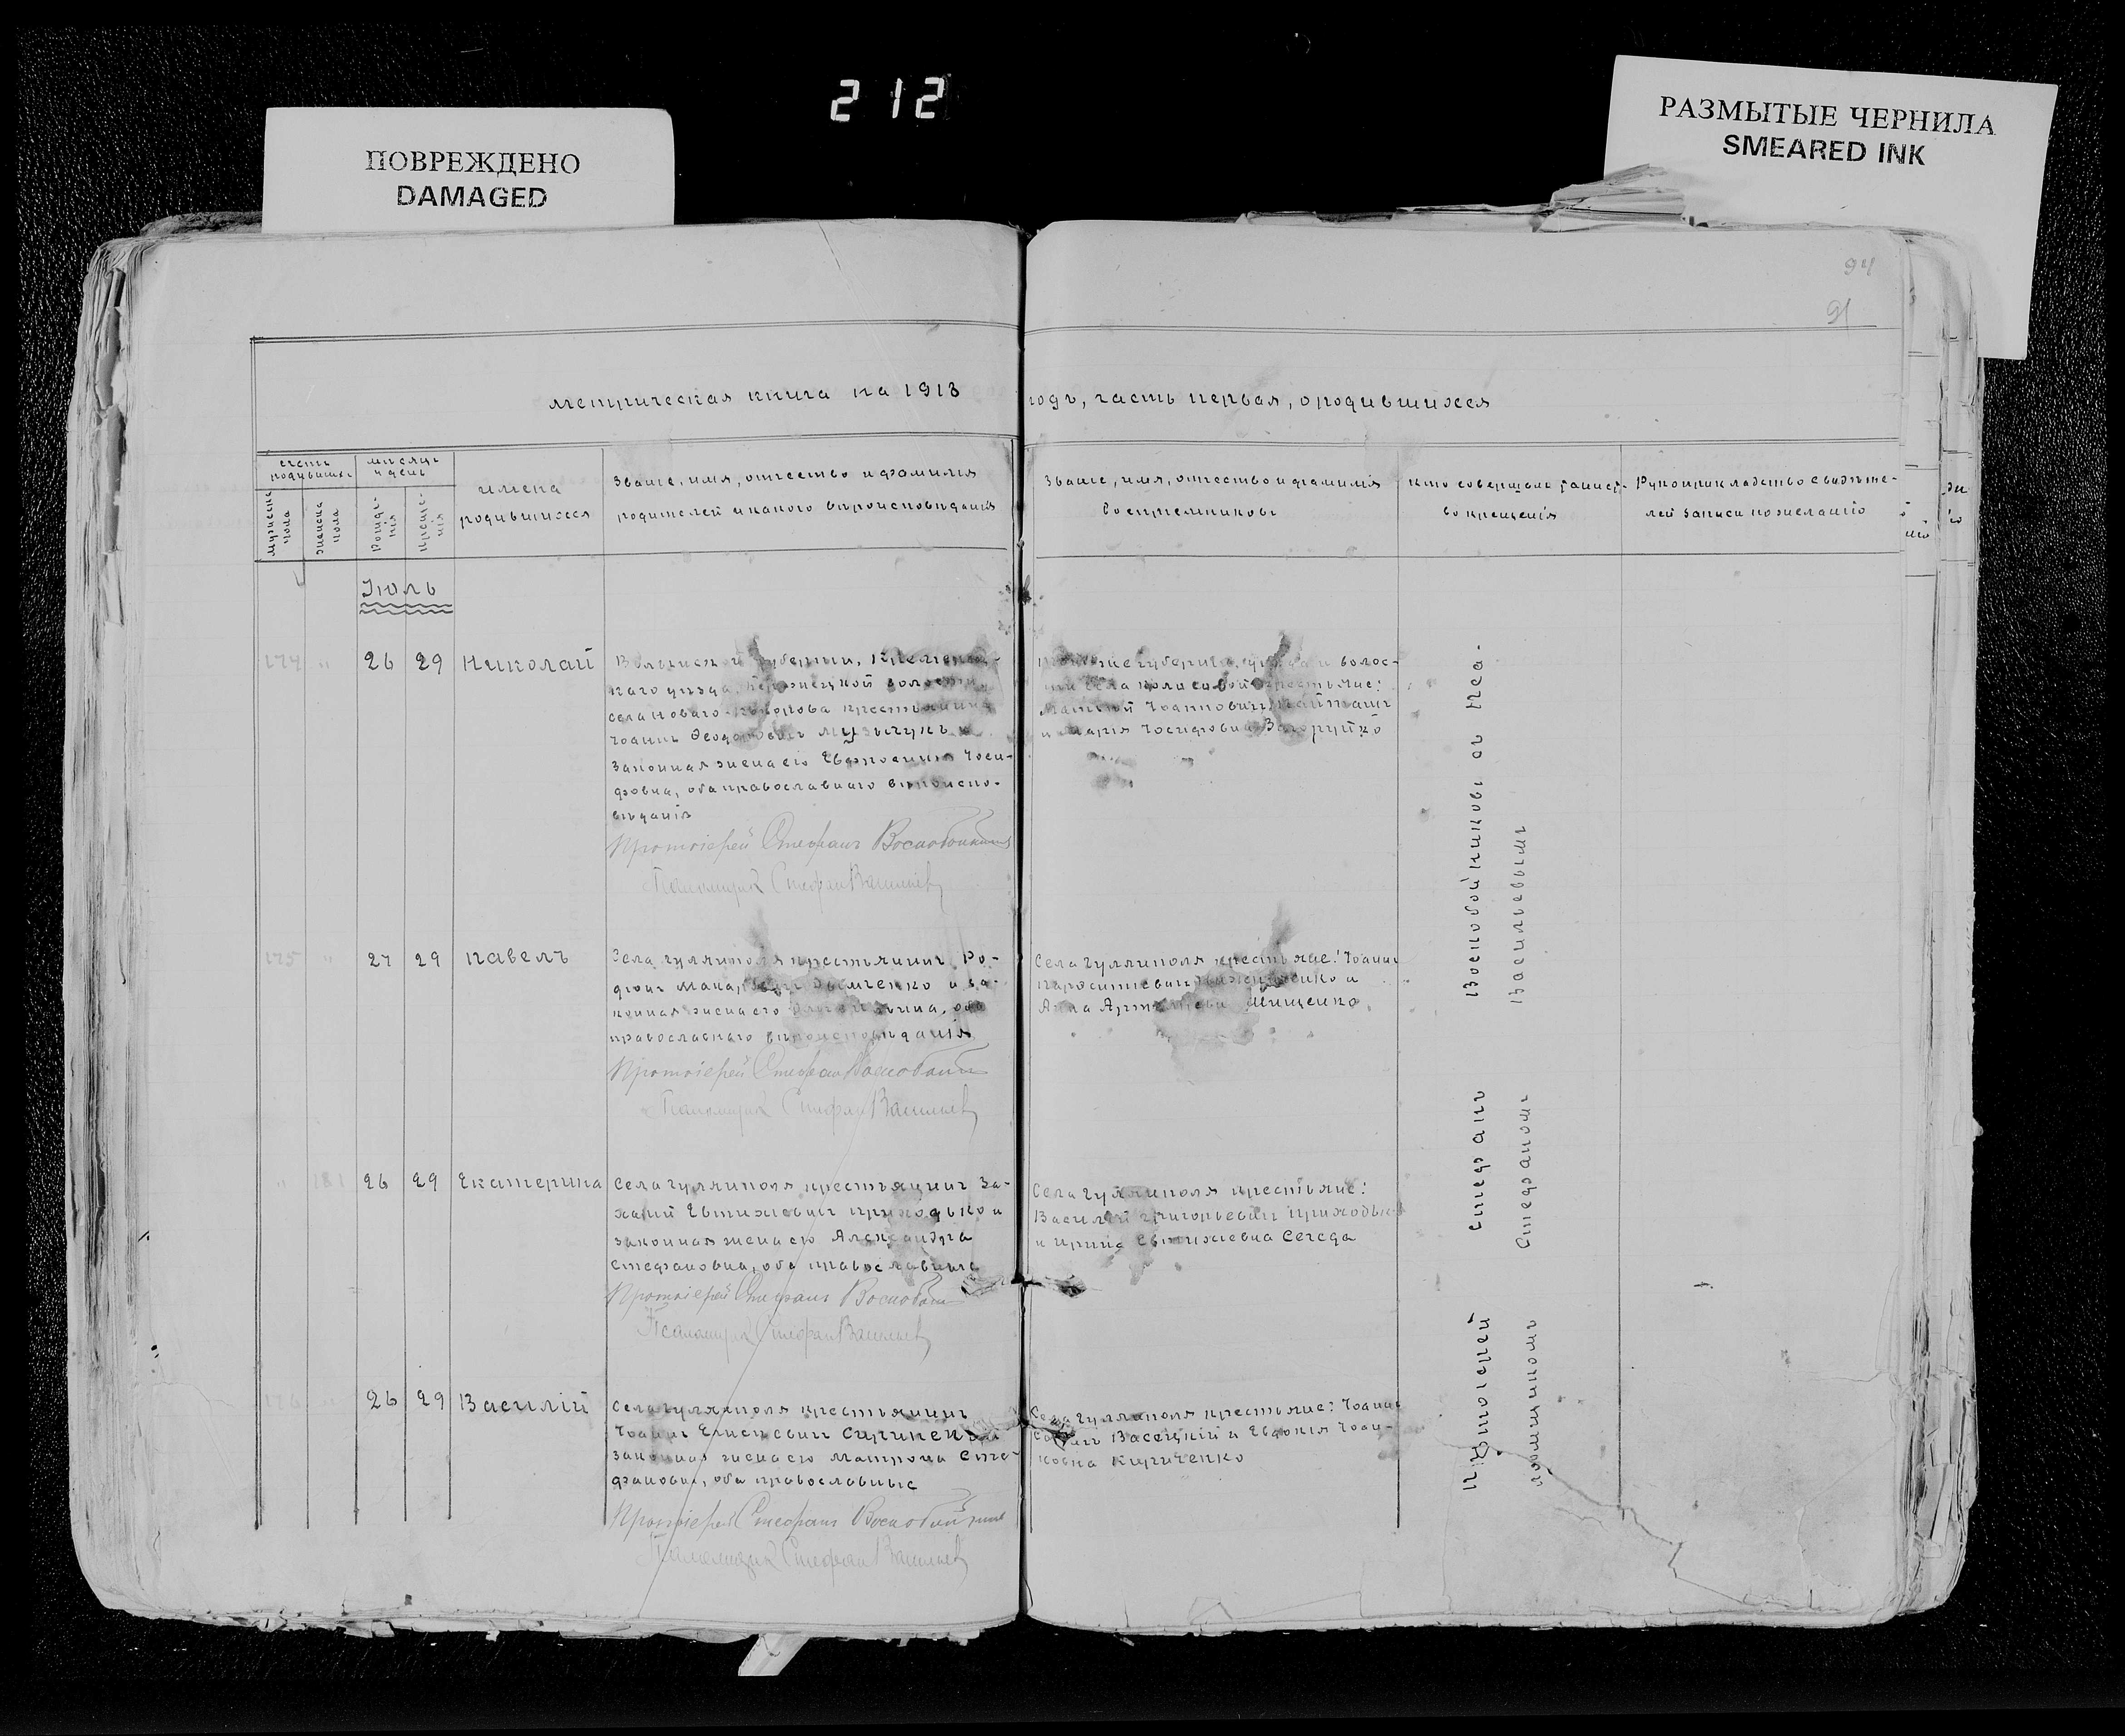 212
ПОВРЕЖДЕНО
DAMAGED
РАЗМЫТЫЕ ЧЕРНИЛА
SMEARED INK
94
91
метрическая книга на 1913 годъ, часть первая, о родившихся
счетъ родившихъ
мужеска пола
женска пола
мѣсяцъ и день
рожде-
нія
креще-
нія
имена
родившихся
Званіе, имя, отчество и фамилія
родителей и какого вѣроисповѣданія
Званіе, имя, отчество и фамилія
воспріемниковъ
кто совершалъ таинст-
во крещенія
Рукоприкладство свидѣте-
лей записи по желанію
Іюль
174 " 26 29 Николай
Волынской губерніи,
каго уѣзда, волости,
села Новаго крестьянинъ
Іоаннъ и
законная жена его Евфросинія Іоси-
фовна, оба православнаго вѣроиспо-
вѣданія
Протоіерей Стефанъ Воскобойниковъ
Псаломщикъ Стефанъ Васильевъ
губерніи, уѣзда и волос-
ти села крестьяне:
Іоанновичъ
и Марія Іосифовна Загоруйко
175 " 27 29 Павелъ
Села Гуляйполя крестьянинъ Ро-
діонъ и за-
конная жена его оба
православнаго вѣроисповѣданія
Протоіерей Стефанъ
Псаломщикъ Стефанъ Васильевъ
Села Гуляйполя крестьяне: Іоаннъ
и
Анна Мищенко
" 181 26 29 Екатерина
Села Гуляйполя крестьянинъ За-
харій Евтихіевичъ Приходько и
законная жена его Александра
Стефановна, оба православные
Протоіерей Стефанъ
Псаломщикъ Стефанъ Васильевъ
Села Гуляйполя крестьяне:
Василій Григорьевичъ Приходько
и Ирина Евтихіевна Середа
176 26 29 Василій
Села Гуляйполя крестьянинъ
Іоаннъ
законная жена его Матрона Сте-
фановна, оба православные
Протоіерей Стефанъ Воскобойниковъ
Псаломщикъ Стефанъ Васильевъ
Села Гуляйполя крестьяне: Іоаннъ
Васецкій и Евдокія Іоан-
новна Кириченко
Протоіерей Стефанъ Воскобойниковъ съ Пса-
ломщикомъ Стефаномъ Васильевымъ